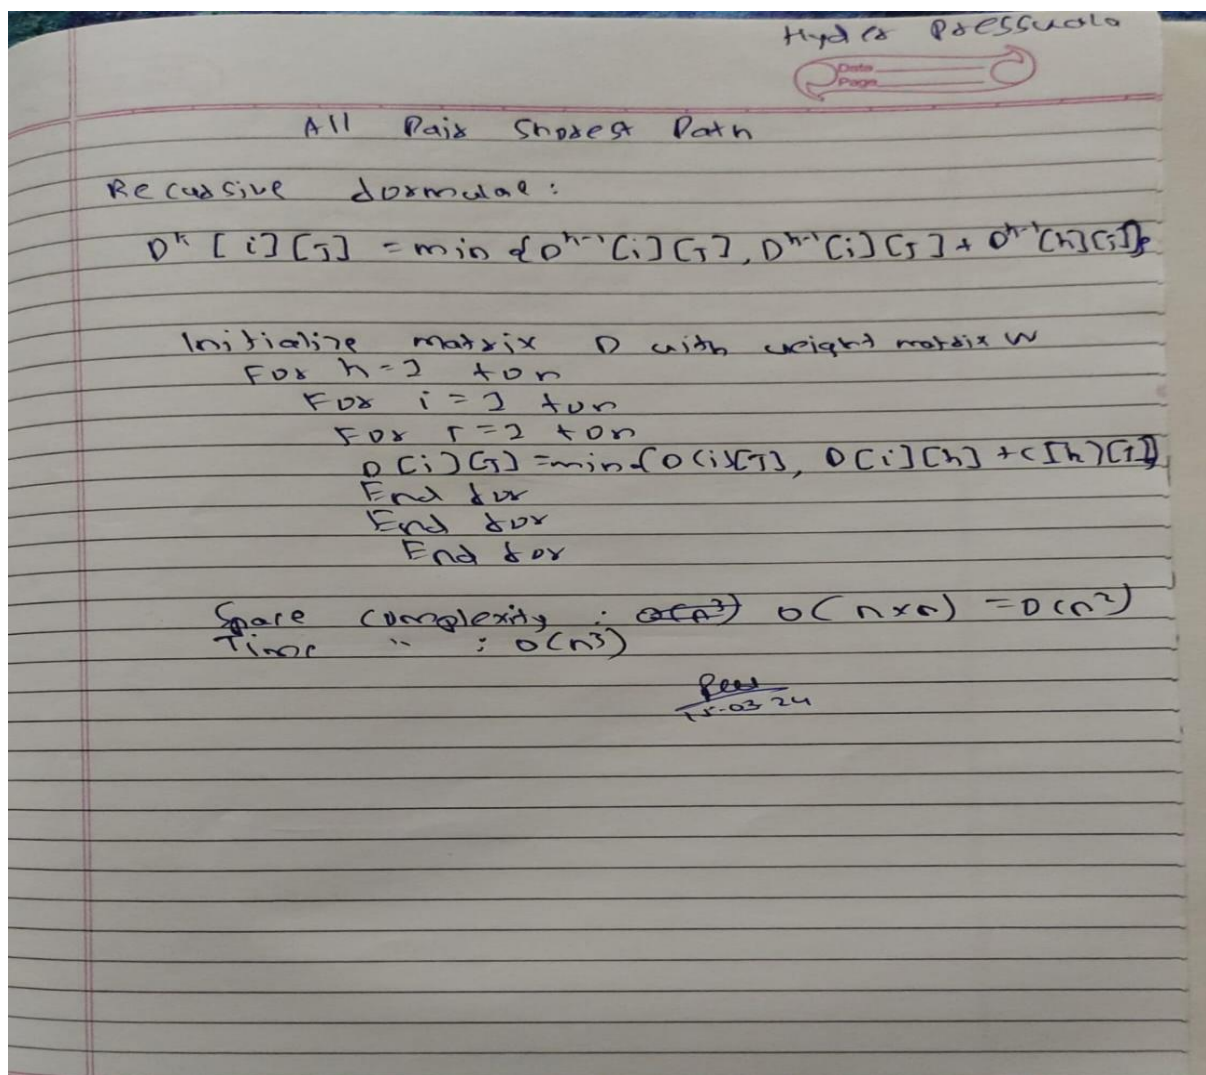 Hyder
Date
Page
All Pair Shorest Path
Recursive formulae:
D^k [i][J] = min {D^k-1[i][J], D^k-1[i][J] + D^k-1[k][J]}
Initialize matrix D with weight matrix W
For k=1 to n
For i = 1 to n
For J=1 to n
D[i][J] = min{D[i][J], D[i][k] + C[k][J]}
End for
End for
End for
Space complexity : O(n^3) O(n×n) = O(n^2)
Time " : O(n^3)
15-03-24